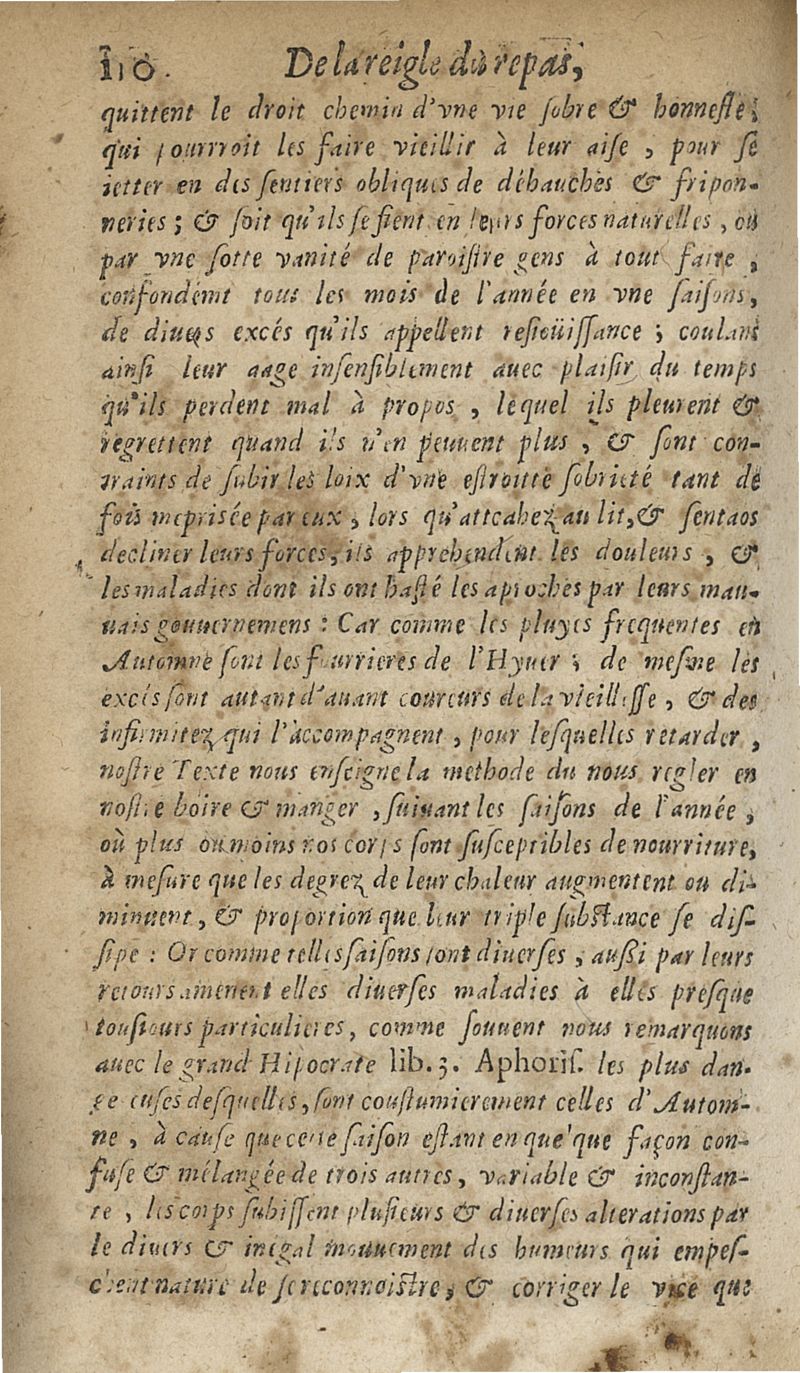 110. De la reigle du repas,
quittent le droit chemin d'vne vie ſobre & honneſte,
qui pourrroit les faire vieillir à leur aiſe, pour ſe
ietter en des ſentiers obliques de débauches & fripon-
neries; & ſoit qu'ils ſe fient en leurs forces naturelles, ou
par vne ſotte vanité de paroiſtre gens à tout faire,
confondent tous les mois de l'année en vne ſaiſons,
de diuers excés qu'ils appellent reſioüiſſance; coulant
ainſi leur aage inſenſiblement auec plaiſir du temps
qu'ils perdent mal à propos, lequel ils pleurent &
regrettent quand ils n'en peuuent plus, & ſont con-
traints de ſubir les loix d'vne eſtroitte ſobrieté tant de
fois mepriſée par eux, lors qu'attcahez au lit, & ſentaos
decliner leurs forces, ils apprehendent les douleurs, &
les maladies dont ils ont haſté les aproches par leurs mau-
uais gouuernemens: Car comme les pluyes frequentes en
Automne ſont les fourrieres de l'Hyuer; de meſme les
excés ſont autant d'auant coureurs de la vieilleſſe, & des
infirmitez qui l'accompagnent, pour leſquelles retarder,
noſtre Texte nous enſeigne la methode du nous regler en
noſtre boire & manger, ſuiuant les ſaiſons de l'année,
où plus ou moins nos corps ſont ſuſceptibles de nourriture,
à meſure que les degrez de leur chaleur augmentent ou di-
minuent, & proportion que leur triple ſubſtance ſe diſ-
ſipe: Or comme telles ſaiſons ſont diuerſes, auſſi par leurs
retours amenent elles diuerſes maladies à elles preſque
touſiours particulieres, comme ſouuent nous remarquons
auec le grand Hipocrate lib. 3. Aphoriſ. les plus dan-
gereuſes deſquelles, ſont couſtumierement celles d'Autom-
ne, à cauſe que cette ſaiſon eſtant en quelque façon con-
fuſe & mélangée de trois autres, variable & inconſtan-
te, les corps ſubiſſent pluſieurs & diuerſes alterations par
le diuers & inégal mouuement des humeurs qui empeſ-
chent nature de ſe reconnoiſtre, & corriger le vice que